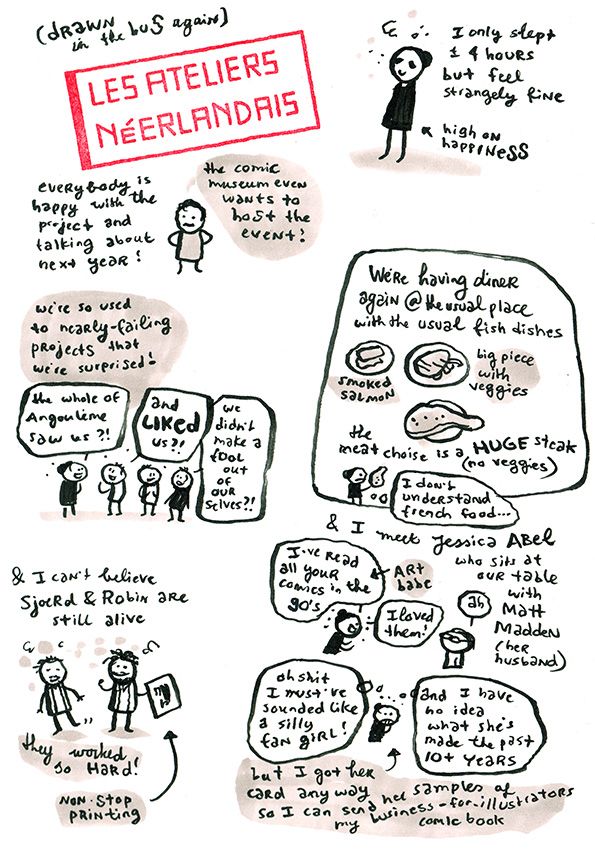 (DRAWN
in the bus again)
LES ATELIERS
NéERLANDAIS
I only slept
± 4 hours
but feel
strangely fine
high on
happiness
everybody is
happy with the
project and
talking about
next year!
the comic
museum even
wants to
host the
event!
we're so used
to nearly-failing
projects that
we're surprised!
the whole of
Angoulème
saw us?!
and
LIKED
us?!
we
didn't
make a
fool
out
of
our
selves?!
We're having diner
again @ the usual place
with the usual fish dishes
smoked
salmon
big piece
with
veggies
the
meat choise is a HUGE steak
(no veggies)
I don't
understand
french food...
& I can't believe
Sjoerd & Robin are
still alive
they worked
so hard!
non-stop
printing
& I meet Jessica Abel
who sits at
our table
with
Matt
Madden
(her
husband)
I've read
all your
comics in the
90's
ART
babe
I loved
them!
ah
oh shit
I must've
sounded like
a silly
fan girl!
and I have
no idea
what she's
made the past
10+ years
but I got her
card any way
so I can send her samples of
my business-for-illustrators
comic book